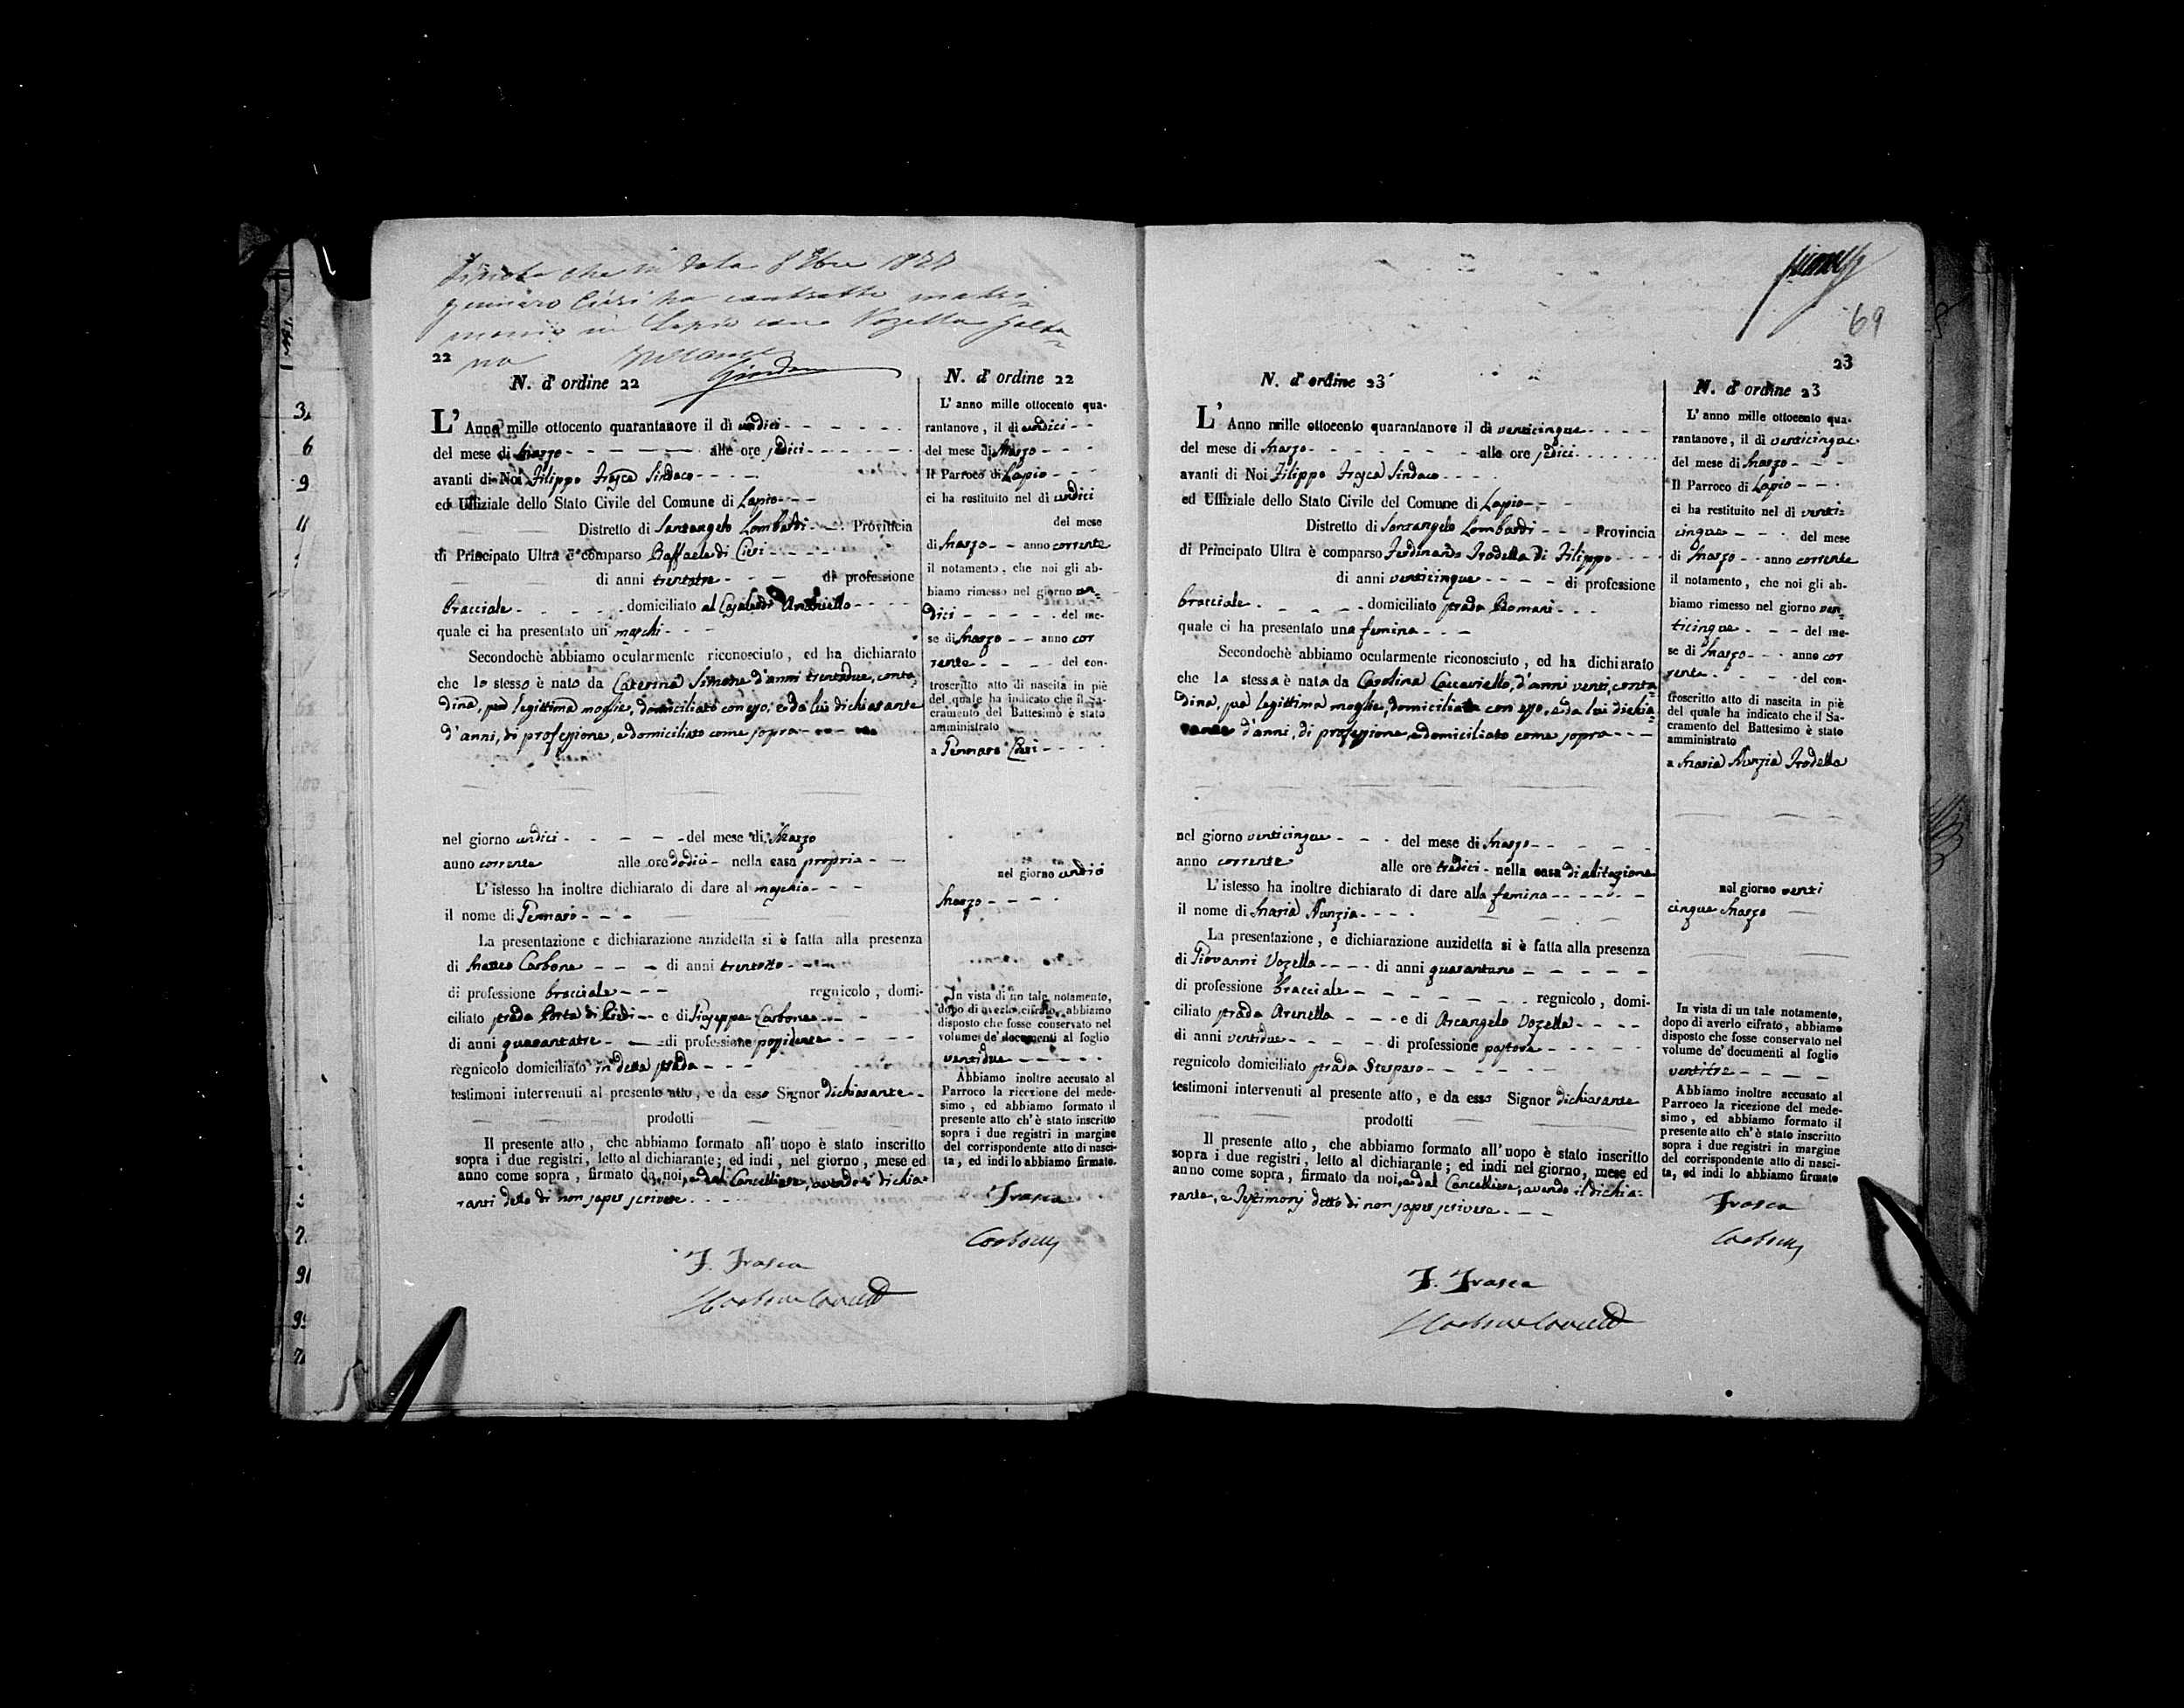 Si nota che in data 8 Xbre 18
Gennaro Ciesi ha contratto matri-
monio in Lapio con Vozella Gaeta-
na
22
N. d'ordine 22
L' Anno mille ottocento quarantanove il dì undici
del mese di Marzo alle ore sedici
avanti di Noi Filippo Frasca Sindaco
ed Uffiziale dello Stato Civile del Comune di Lapio
Distretto di Santangelo Lombardi Provincia
di Principato Ultra è comparso Raffaele di
di anni trentatre di professione
bracciale domiciliato al
quale ci ha presentato un maschi
Secondochè abbiamo ocularmente riconosciuto, ed ha dichiarato
che lo stesso è nato da Caterina Simone d'anni trentadue, conta-
dina, sua legittima moglie, domiciliata con esso, e da lui dichiarante
d'anni, di professione, e domiciliato come sopra
nel giorno undici del mese di Marzo
anno corrente alle ore dodici nella casa propria
L'istesso ha inoltre dichiarato di dare al maschio
il nome di Gennaro
La presentazione e dichiarazione anzidetta si è fatta alla presenza
di Matteo Carbone di anni trentotto
di professione bracciale regnicolo, domi-
ciliato strada Porta di e di Giuseppe Carbone
di anni quarantatre di professione possidente
regnicolo domiciliato in detta strada
testimoni intervenuti al presente atto, e da esso Signor dichiarante
prodotti
Il presente atto, che abbiamo formato all'uopo è stato inscritto
sopra i due registri, letto al dichiarante; ed indi, nel giorno, mese ed
anno come sopra, firmato da noi, e dal Cancelliere, avendo i dichia-
ranti detto di non saper scrivere
F. Frasca
N. d'ordine 22
L'anno mille ottocento qua-
rantanove, il dì undici
del mese di Marzo
Il Parroco di Lapio
ci ha restituito nel dì undici
del mese
di Marzo anno corrente
il notamento, che noi gli ab-
biamo rimesso nel giorno un-
dici del me-
se di Marzo anno cor
rente del con-
troscritto atto di nascita in piè
del quale ha indicato che il Sa-
cramento del Battesimo è stato
amministrato
a Gennaro
nel giorno undici
Marzo
In vista di un tale notamento,
dopo di averlo cifrato, abbiamo
disposto che fosse conservato nel
volume de' documenti al foglio
ventidue
Abbiamo inoltre accusato al
Parroco la ricezione del mede-
simo, ed abbiamo formato il
presente atto ch'è stato inscritto
sopra i due registri in margine
del corrispondente atto di nasci-
ta, ed indi lo abbiamo firmato.
Frasca
Carbone
69
23
N. d'ordine 23
L' Anno mille ottocento quarantanove il dì venticinque
del mese di Marzo alle ore sedici
avanti di Noi Filippo Frasca Sindaco
ed Uffiziale dello Stato Civile del Comune di Lapio
Distretto di Santangelo Lombardi Provincia
di Principato Ultra è comparso Ferdinando Trodella di Filippo
di anni venticinque di professione
bracciale domiciliato strada Romani
quale ci ha presentato una femina
Secondochè abbiamo ocularmente riconosciuto, ed ha dichiarato
che la stessa è nata da Carolina Caccaviello, d'anni venti, conta-
dina, sua legittima moglie, domiciliata con esso, e da lui dichia-
rante d'anni, di professione, e domiciliato come sopra
nel giorno venticinque del mese di Marzo
anno corrente alle ore tredici nella casa di abitazione
L'istesso ha inoltre dichiarato di dare alla femina
il nome di Maria Nunzia
La presentazione, e dichiarazione anzidetta si è fatta alla presenza
di Giovanni Vozella di anni quarantuno
di professione bracciale regnicolo, domi-
ciliato strada Arenella e di Arcangelo Vozella
di anni ventidue di professione pastore
regnicolo domiciliato strada Sterparo
testimoni intervenuti al presente atto, e da esso Signor dichiarante
prodotti
Il presente atto, che abbiamo formato all'uopo è stato inscritto
sopra i due registri, letto al dichiarante; ed indi nel giorno, mese ed
anno come sopra, firmato da noi, e dal Cancelliere, avendo il dichia-
rante, e Testimonj detto di non saper scrivere
F. Frasca
N. d'ordine 23
L'anno mille ottocento qua-
rantanove, il dì venticinque
del mese di Marzo
Il Parroco di Lapio
ci ha restituito nel dì venti-
cinque del mese
di Marzo anno corrente
il notamento, che noi gli ab-
biamo rimesso nel giorno ven-
ticinque del me-
se di Marzo anno cor
rente del con-
troscritto atto di nascita in piè
del quale ha indicato che il Sa-
cramento del Battesimo è stato
amministrato
a Maria Nunzia Trodella
nel giorno venti
cinque Marzo
In vista di un tale notamento,
dopo di averlo cifrato, abbiamo
disposto che fosse conservato nel
volume de' documenti al foglio
ventitre
Abbiamo inoltre accusato al
Parroco la ricezione del mede-
simo, ed abbiamo formato il
presente atto ch'è stato inscritto
sopra i due registri in margine
del corrispondente atto di nasci-
ta, ed indi lo abbiamo firmato
Frasca
Carbone